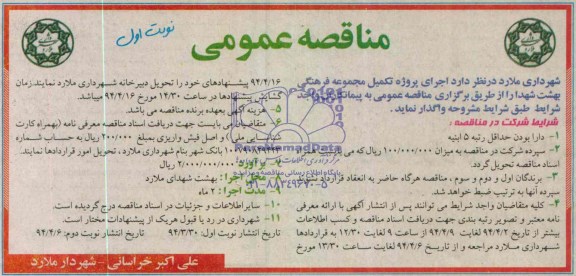 مناقصه عمومی
نوبت اول
شهرداری ملارد درنظر دارد اجرای پروژه تکمیل مجموعه فرهنگی
بهشت شهدا را از طریق برگزاری مناقصه عمومی به پیمانکاران واجد
شرایط طبق شرایط مشروحه واگذار نماید.
شرایط شرکت در مناقصه:
۱- دارا بودن حداقل رتبه ۵ ابنیه
۲- سپرده شرکت در مناقصه به میزان ۱۰۰/۰۰۰/۰۰۰ ریال که می بایست
اسناد مناقصه تحویل گردد.
۳- برندگان اول و دوم و سوم، مناقصه هرگاه حاضر به انعقاد قرارداد نشوند
سپرده آنها به ترتیب ضبط خواهد شد.
۴- کلیه متقاضیان واجد شرایط می توانند پس از انتشار آگهی با ارائه معرفی
نامه معتبر و تصویر رتبه بندی جهت دریافت اسناد مناقصه و کسب اطلاعات
بیشتر از تاریخ ۹۴/۴/۲ لغایت ۹۴/۴/۹ از ساعت ۹ لغایت ۱۲/۳۰ به قراردادها
شهرداری ملارد مراجعه و از تاریخ ۹۴/۴/۶ لغایت ساعت ۱۳/۳۰ مورخ
۹۴/۴/۱۶ پیشنهادهای خود را تحویل دبیرخانه شهرداری ملارد نمایند. زمان
گشایش پیشنهادها در ساعت ۱۴/۳۰ مورخ ۹۴/۴/۱۶ میباشد.
۵- هزینه آگهی بعهده برنده مناقصه می باشد.
۶- متقاضیان می بایست جهت دریافت اسناد مناقصه معرفی نامه (بهمراه کارت
شناسایی ملی) و اصل فیش واریزی بمبلغ ۲۰۰/۰۰۰ ریال به حساب شماره
بانک شهر بنام شهرداری ملارد، تحویل امور قراردادها نمایند.
۷- برآورد: ۲/۰۰۰/۰۰۰/۰۰۰ ریال
۸- محل اجرا: بهشت شهدای ملارد
۹- مدت اجرا: ۲ ماه
۱۰- سایر اطلاعات و جزئیات در اسناد مناقصه درج گردیده است.
۱۱- شهرداری در رد یا قبول هریک از پیشنهادات مختار است.
تاریخ انتشار نوبت اول: ۹۴/۳/۳۰ تاریخ انتشار نوبت دوم: ۹۴/۴/۶
علی اکبر خراسانی - شهردار ملارد
ParsNamadData
پایگاه اطلاع رسانی مناقصه و مزایده
۰۲۱-۸۸۳۴۹۶۷۰-۵